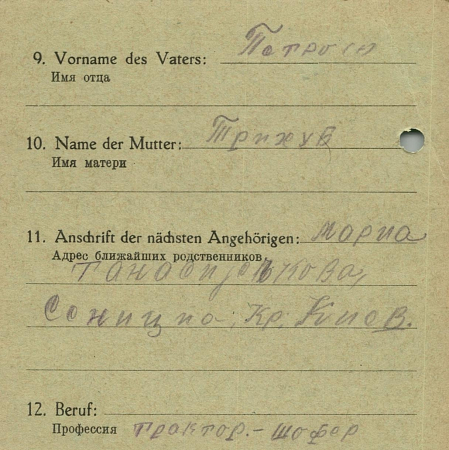 9. Vorname des Vaters: Петрося
Имя отца
10. Name der Mutter: Трихуб
Имя матери
11. Anschrift der nächsten Angehörigen: мариа
Адрес ближайших родственников
Кр. Киев.
12. Beruf:
Профессия трактор.-шофер